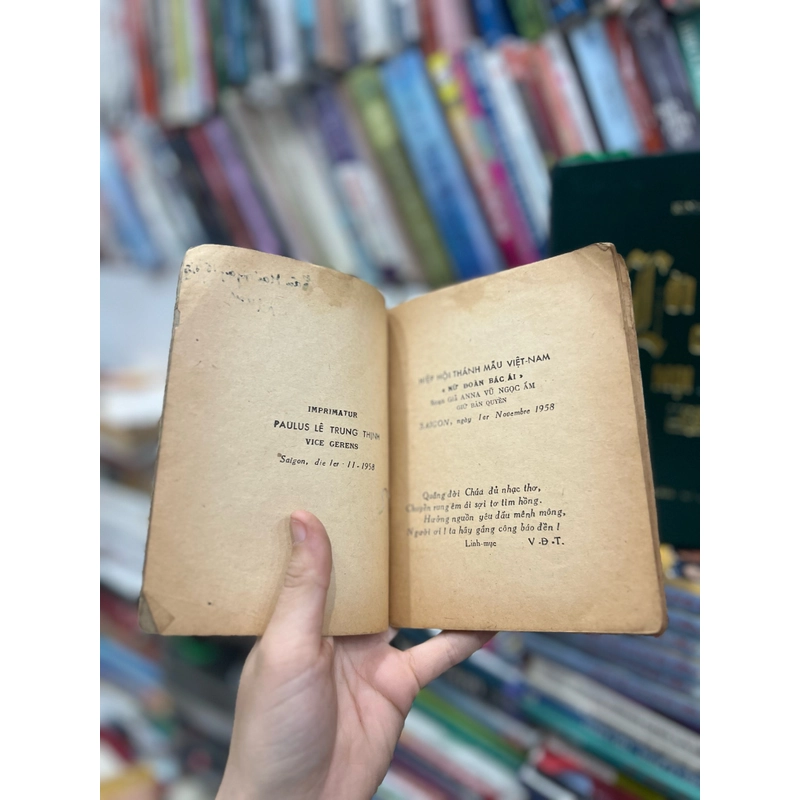 IMPRIMATUR
PAULUS LÊ TRUNG THỊNH
VICE GERENS
Saigon, die 1er - 11 - 1958
HIỆP HỘI THÁNH MẪU VIỆT-NAM
« NỮ ĐOÀN BÁC ÁI »
SOẠN GIẢ ANNA VŨ NGỌC ẤM
GIỮ BẢN QUYỀN
SAIGON, ngày 1er Novembre 1958
Quãng đời Chúa đủ nhạc thơ,
Chuyền rung êm ái sợi tơ tim hồng.
Hướng nguồn yêu dấu mênh mông,
Người ơi ! ta hãy gắng công báo đền !
Linh-mục V.Đ.T.